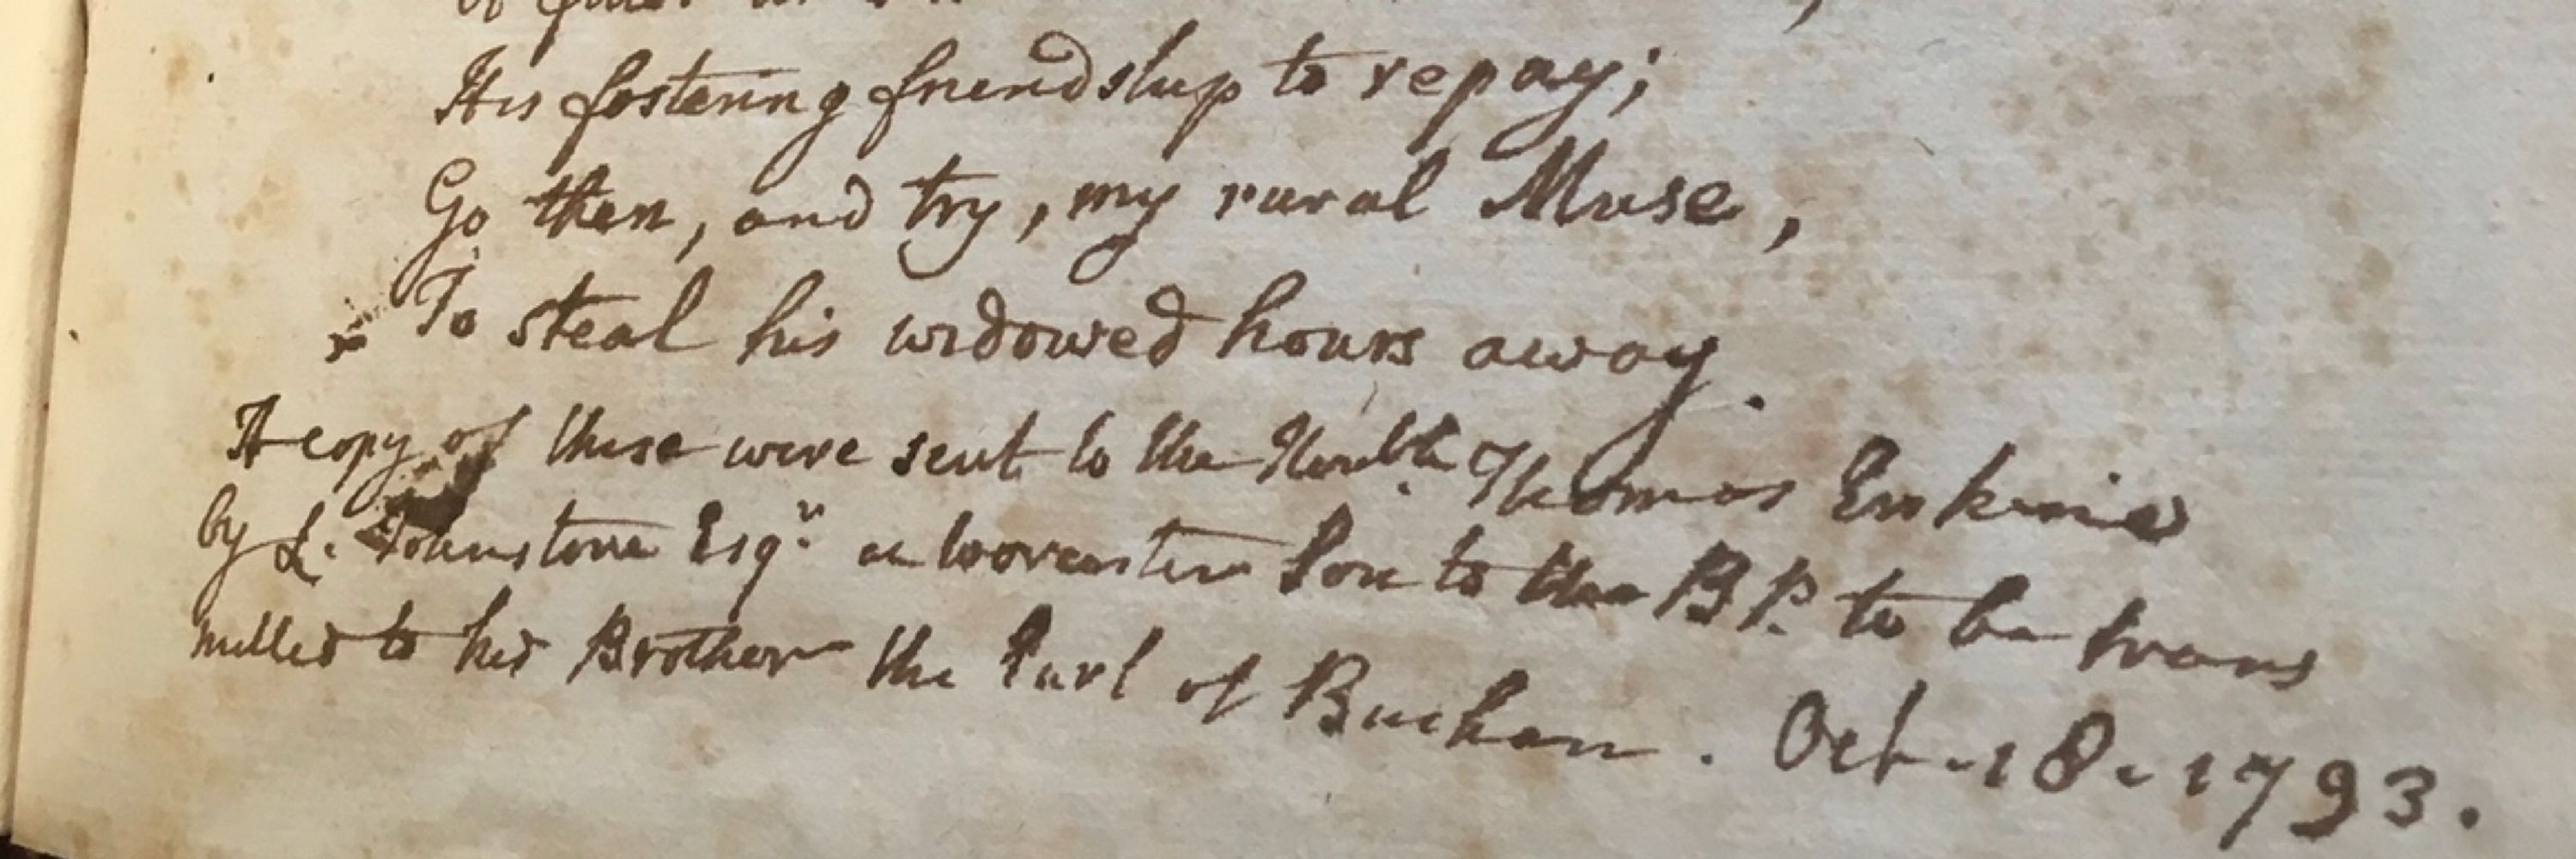 His fostering friendship to repay;
Go then, and try, my rural Muse,
To steal his widowed hours away.
A copy of these were sent to the Honble. Thomas Erskine
by L. Johnstone Esqr. a Son to the B P. to be trans
mitted to his Brother the Earl of Buchan. Oct. 18. 1793.